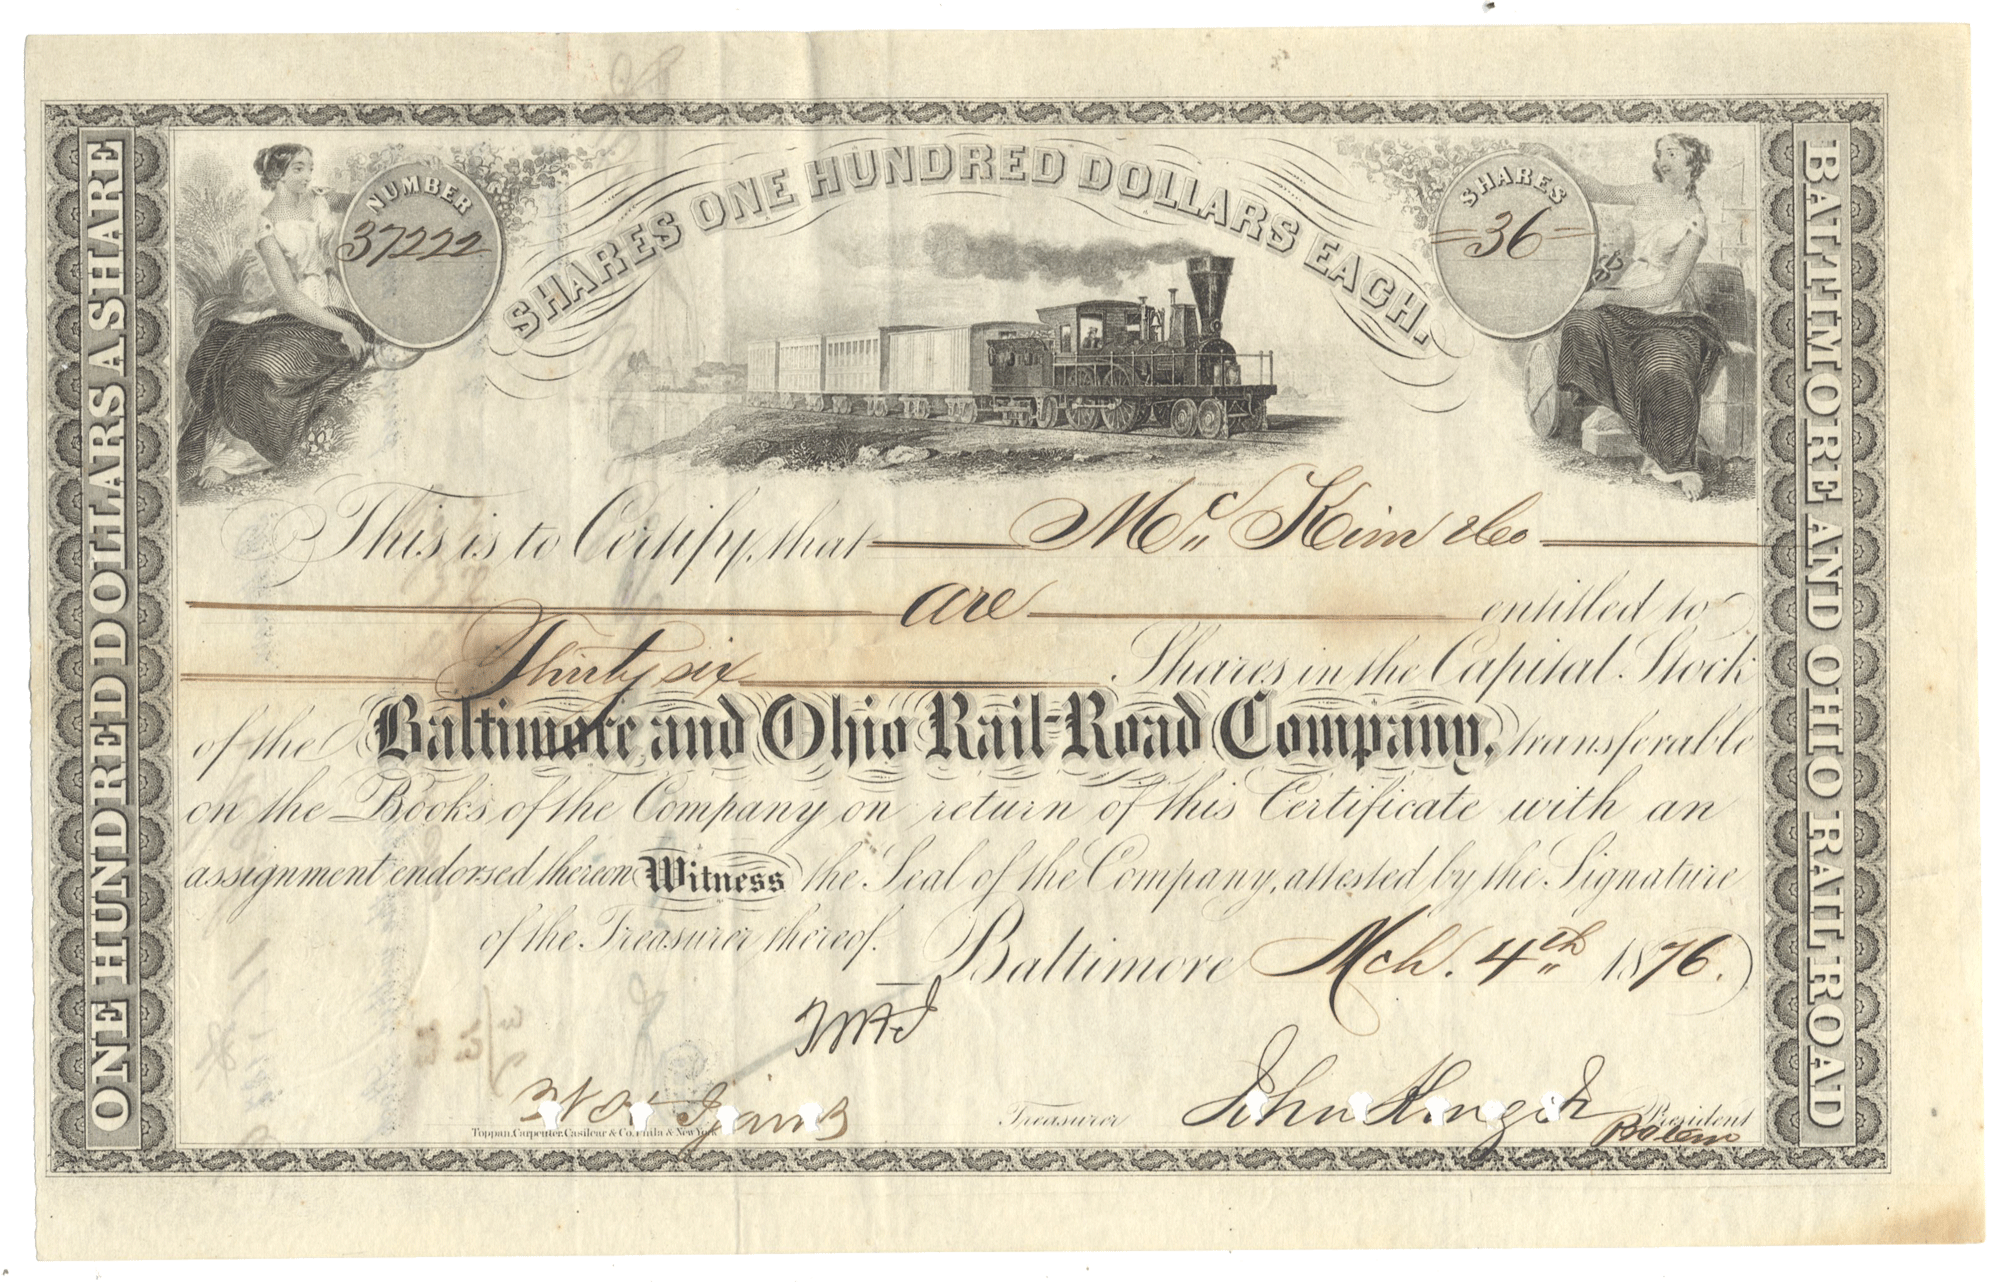 SHARES ONE HUNDRED DOLLARS EACH.
NUMBER
37222
SHARES
36
ONE HUNDRED DOLLARS A SHARE
BALTIMORE AND OHIO RAIL ROAD
This is to Certify, that Mc Kim & Co
are entitled to
Thirty six Shares in the Capital Stock
of the Baltimore and Ohio Rail-Road Company, transferable
on the Books of the Company on return of this Certificate with an
assignment endorsed thereon Witness the Seal of the Company, attested by the Signature
of the Treasurer thereof. Baltimore Mch. 4th 1876.
Treasurer John King Jr President
Pro tem
Toppan, Carpenter, Casilear & Co. Phila & New York